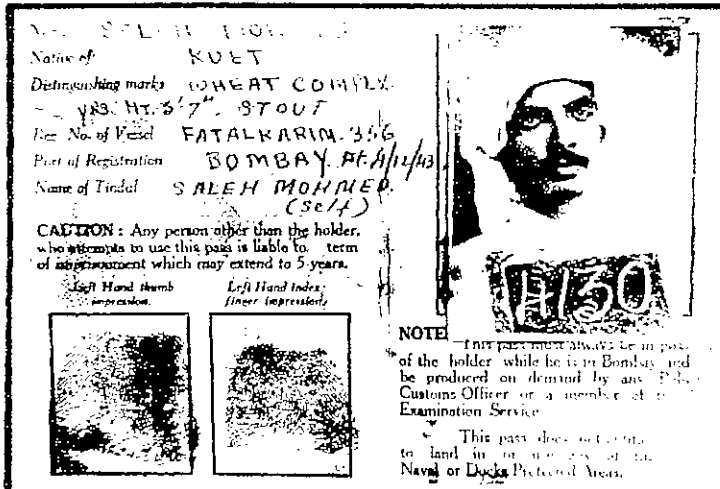 Native of: KUET
Distinguishing marks WHEAT COMPLX.
YRS. HT. 5'7". STOUT
No. of Vessel FATALKARIM. 356
Port of Registration BOMBAY. 4/12/43
Name of Tindal SALEH MOHMED.
(Self)
CAUTION: Any person other than the holder,
who attempts to use this pass is liable to term
of imprisonment which may extend to 5 years.
Left Hand thumb
impression.
Left Hand Index
finger impression.
A130
NOTE
This pass must always be in
of the holder while he is in Bombay and
be produced on demand by any
Customs Officer or a member of
Examination Service
This pass does not
to land in or
Naval or Docks Protected Areas.